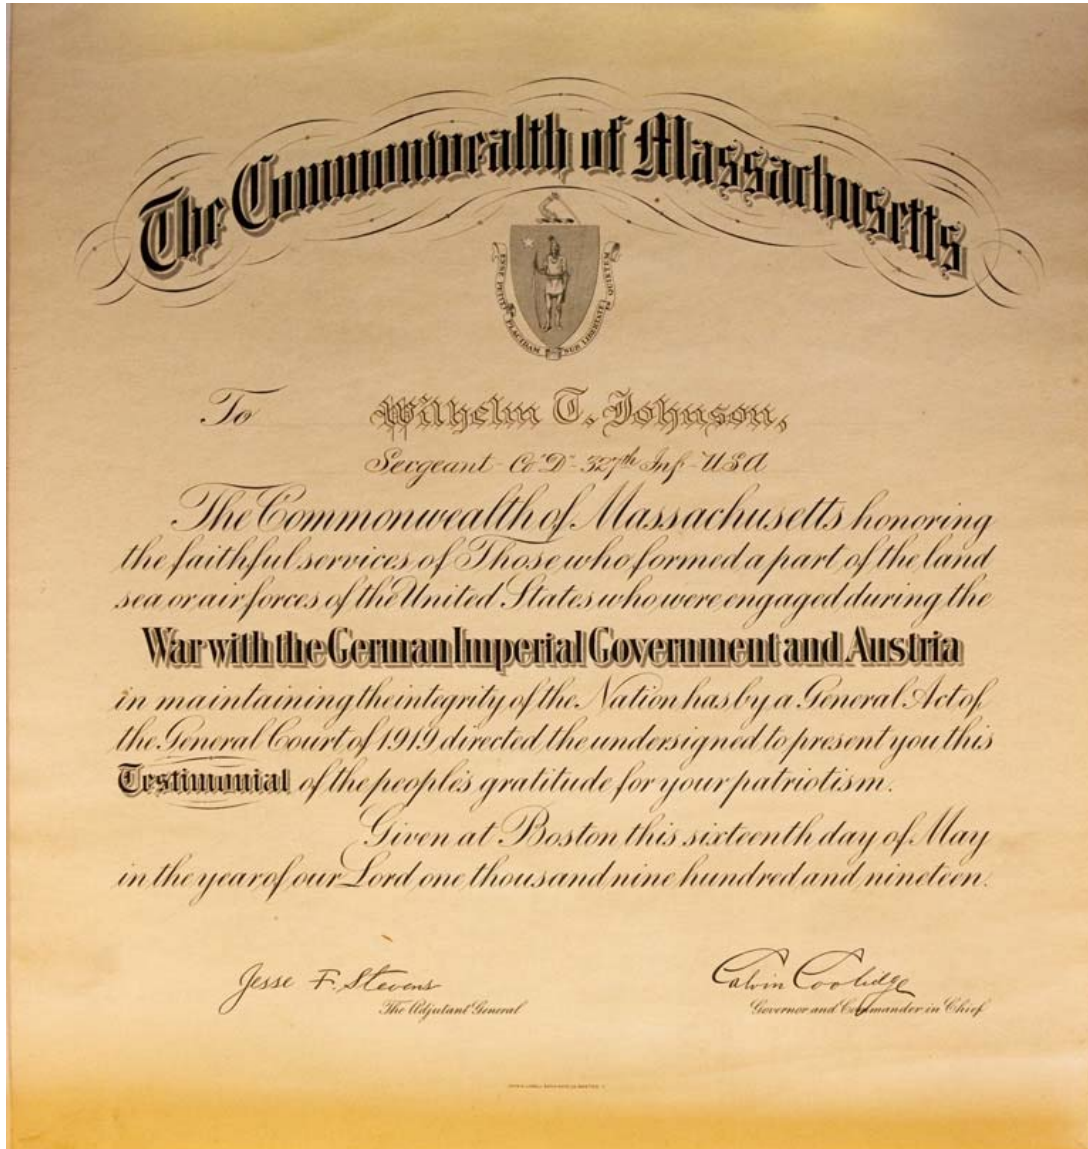 The Commonwealth of Massachusetts
ENSE PETIT PLACIDAM SUB LIBERTATE QUIETEM
To Wilhelm T. Johnson,
Sergeant - Co "D" - 327th Inf - USA
The Commonwealth of Massachusetts honoring
the faithful services of Those who formed a part of the land
sea or air forces of the United States who were engaged during the
War with the German Imperial Government and Austria
in maintaining the integrity of the Nation has by a General Act of
the General Court of 1919 directed the undersigned to present you this
Testimonial of the people's gratitude for your patriotism.
Given at Boston this sixteenth day of May
in the year of our Lord one thousand nine hundred and nineteen.
Jesse F. Stevens
The Adjutant General
Calvin Coolidge
Governor and Commander in Chief